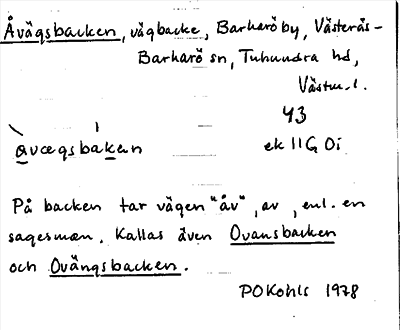 Åvägsbacken, vägbacke, Barkarö by, Västerås-
Barkarö sn, Tuhundra hd,
Västm. l.
43
avægsbakɛn ek 11G 0i
På backen tar vägen "åv", av, enl. en
sagesman. Kallas även Ovansbacken
och Ovängsbacken.
POKohls 1978